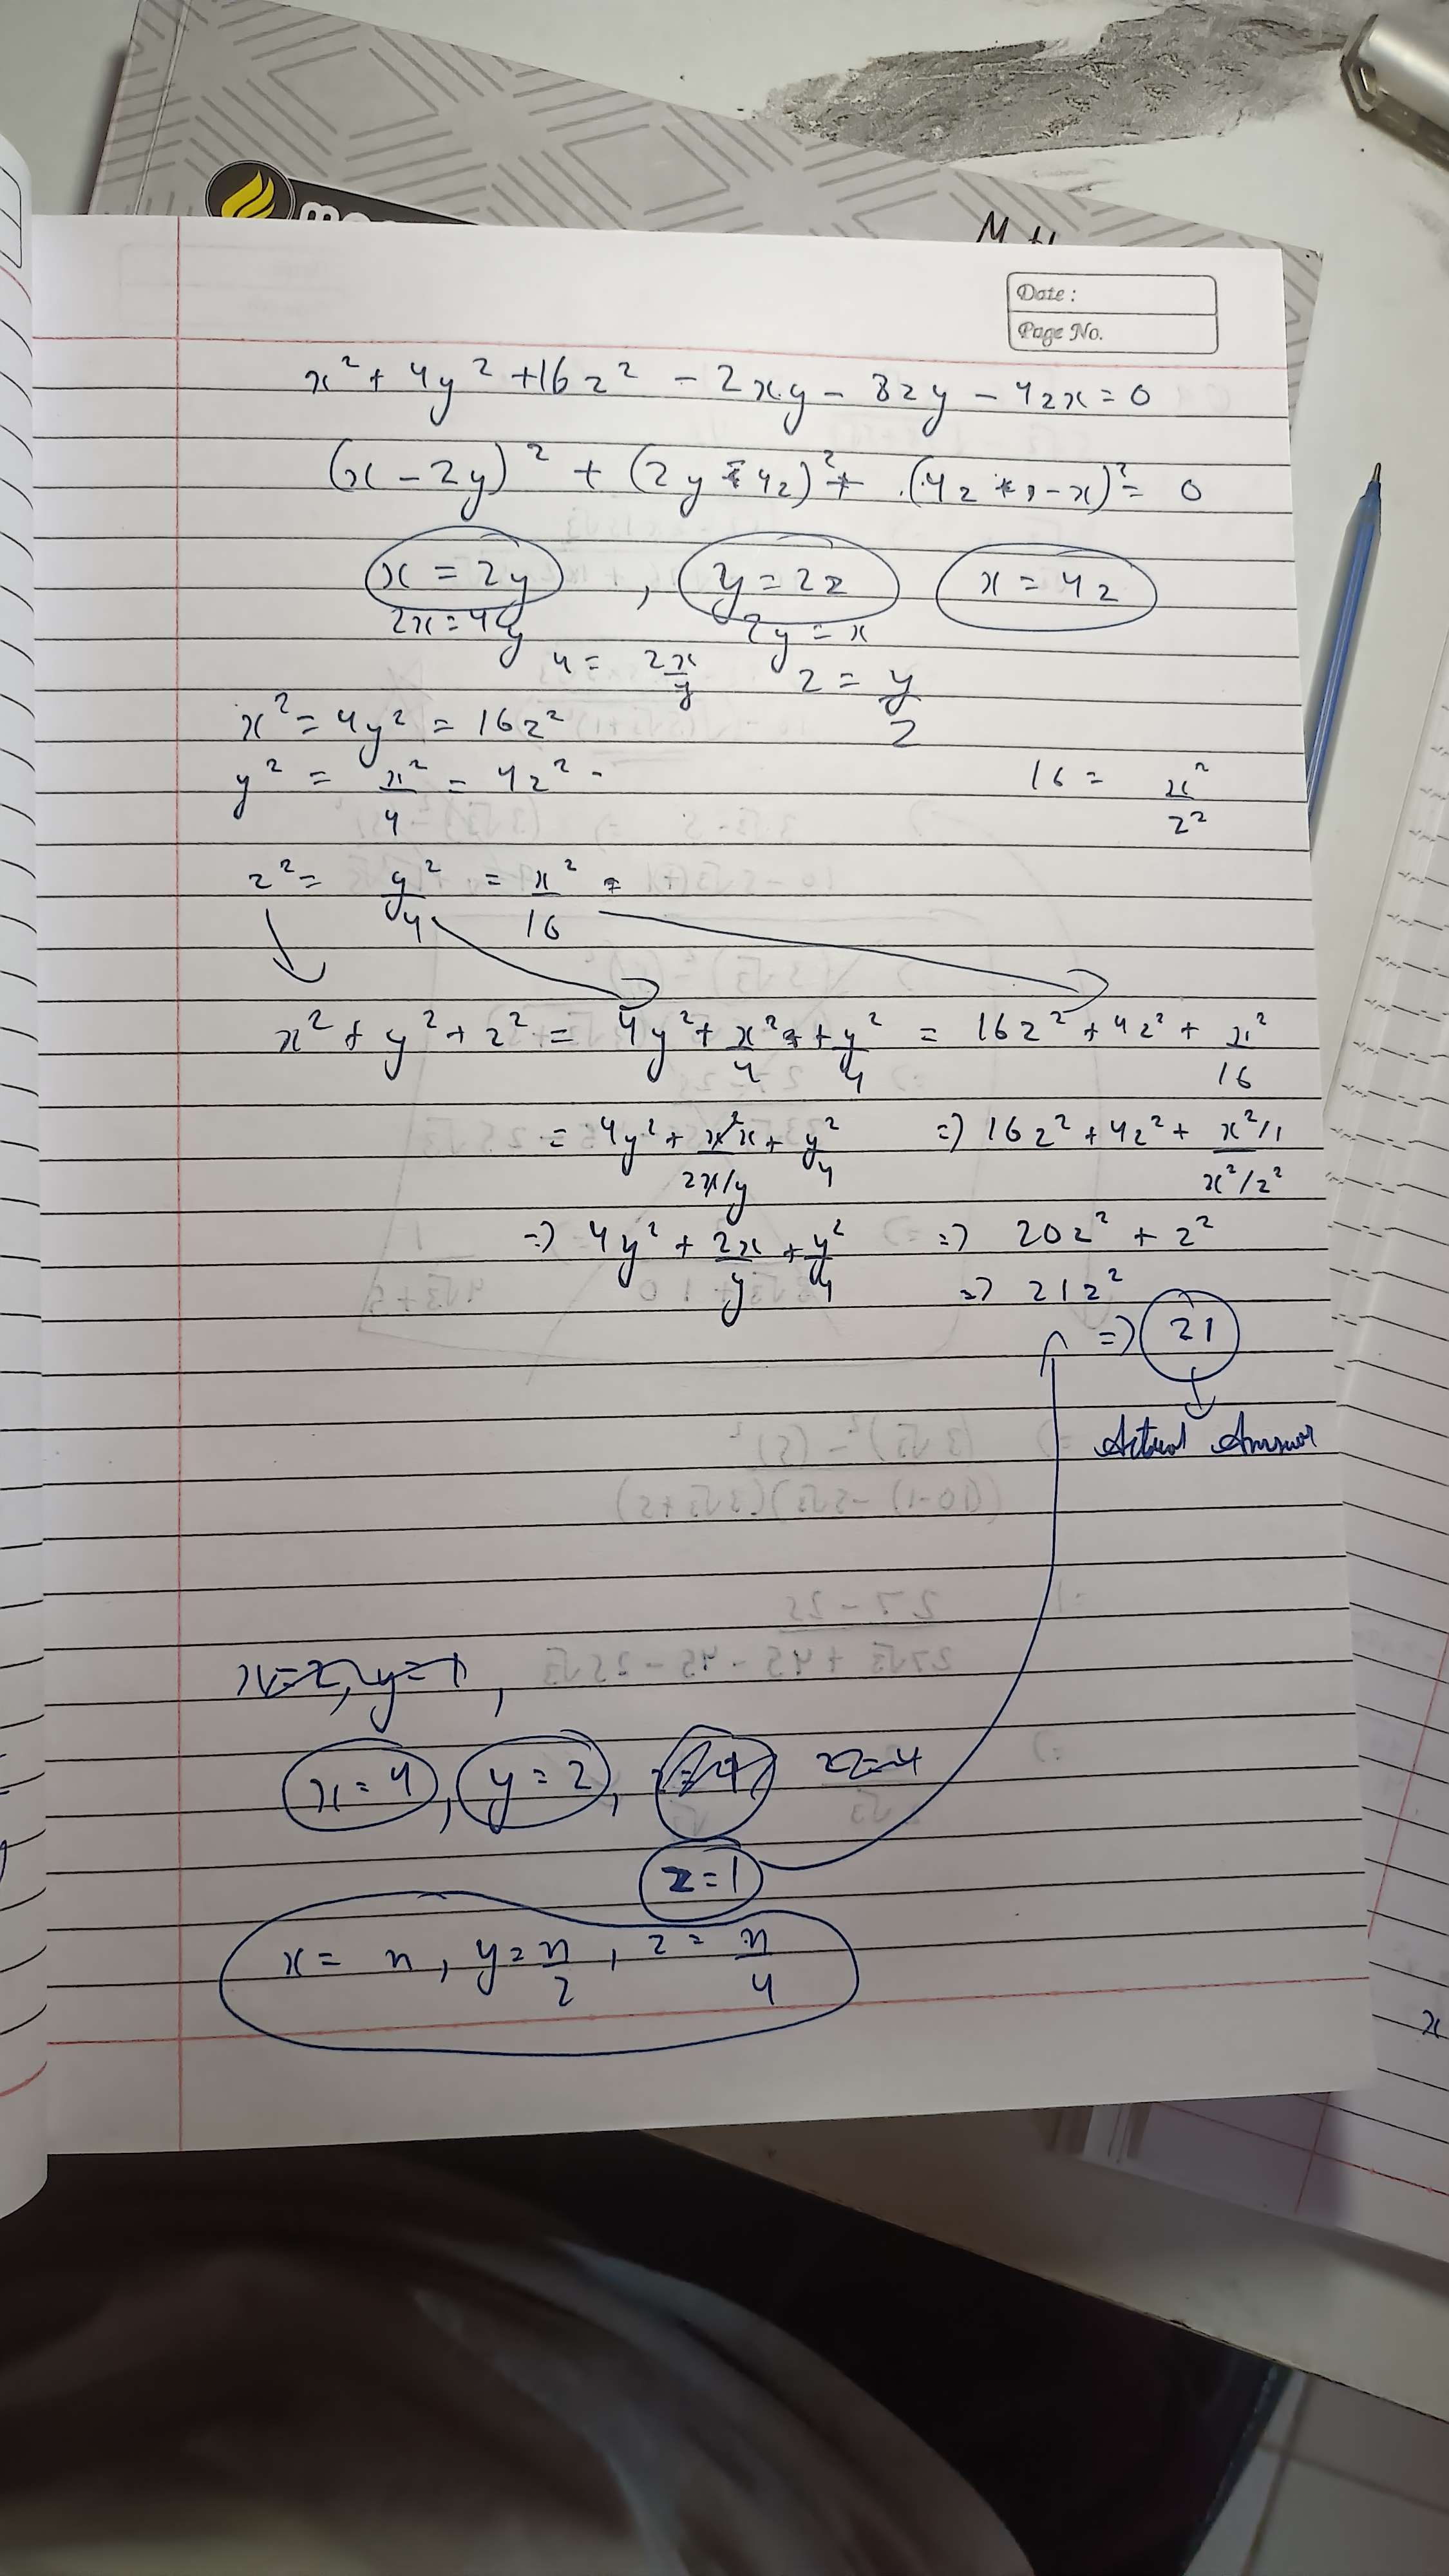 Date :
Page No.
x² + 4y² + 16z² - 2xy - 8zy - 4zx = 0
(x - 2y)² + (2y - 4z)² + (4z - x)² = 0
x = 2y , y = 2z x = 4z
2x = 4y 2y = x
4 = 2x/y 2 = y/z
x² = 4y² = 16z²
y² = x²/4 = 4z² 16 = x²/z²
z² = y²/4 = x²/16
x² + y² + z² = 4y² + x²/4 + y²/4 = 16z² + 4z² + x²/16
= 4y² + x²/(2x/y) + y²/4 => 16z² + 4z² + (x²/1)/(x²/z²)
=> 4y² + 2x/y + y²/4 => 20z² + z²
=> 21z²
=> 21
Actual Answer
x=2, y=1,
x = 4, y = 2,
z = 1
x = n, y = n/2, z = n/4